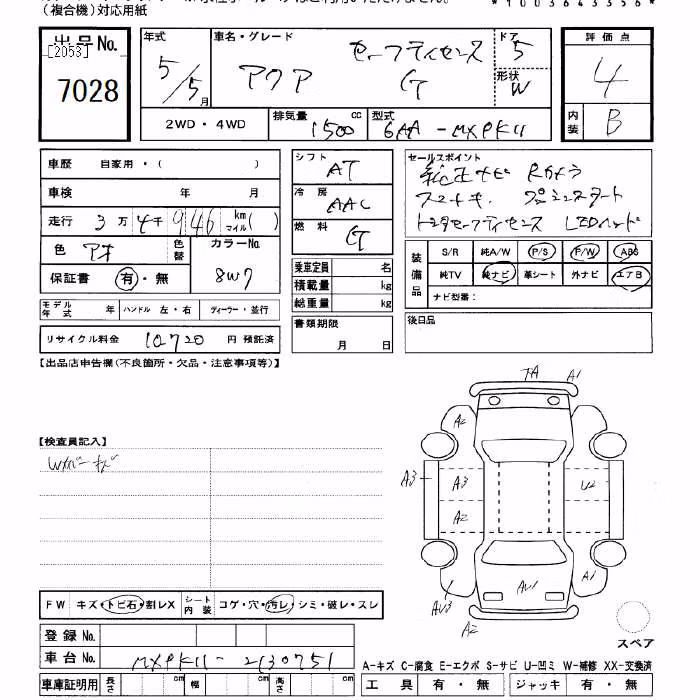 (複合機)対応用紙
*1003643356*
出品No.
[2053]
7028
年式 5/5月
車名・グレード アクア セーフティセンス G
ドア 5
形状 W
評価点 4
内装 B
2WD・4WD
排気量 1500cc
型式 6AA-MXPK11
車歴 自家用・( )
車検 年 月
走行 3万4千946km マイル( )
色 アオ
色替
カラーNo. 8W7
保証書 有・無
モデル年式 年 ハンドル 左・右 ディーラー・並行
リサイクル料金 10720円 預託済
シフト AT
冷房 AAC
燃料 G
乗車定員 名
積載量 kg
総重量 kg
書類期限 月 日
セールスポイント
純正ナビ Rカメラ
スマートキー プッシュスタート
トヨタセーフティセンス LEDヘッド
装備品
S/R 純A/W P/S P/W ABS
純TV 純ナビ 革シート 外ナビ エアB
ナビ型番:
後日品
【出品店申告欄(不良箇所・欠品・注意事項等)】
【検査員記入】
Wカバーキズ
FW キズ・トビ石・割レX シート内装 コゲ・穴・汚レ・シミ・破レ・スレ
登録No.
車台No. MXPK11-2130751
車庫証明用 長さ cm 幅 cm 高さ cm
A1
A2
A3
A3
A2
U2
A1
AU3
AU1
A2
スペア
A-キズ C-腐食 E-エクボ S-サビ U-凹ミ W-補修 XX-交換済
工具 有・無 ジャッキ 有・無